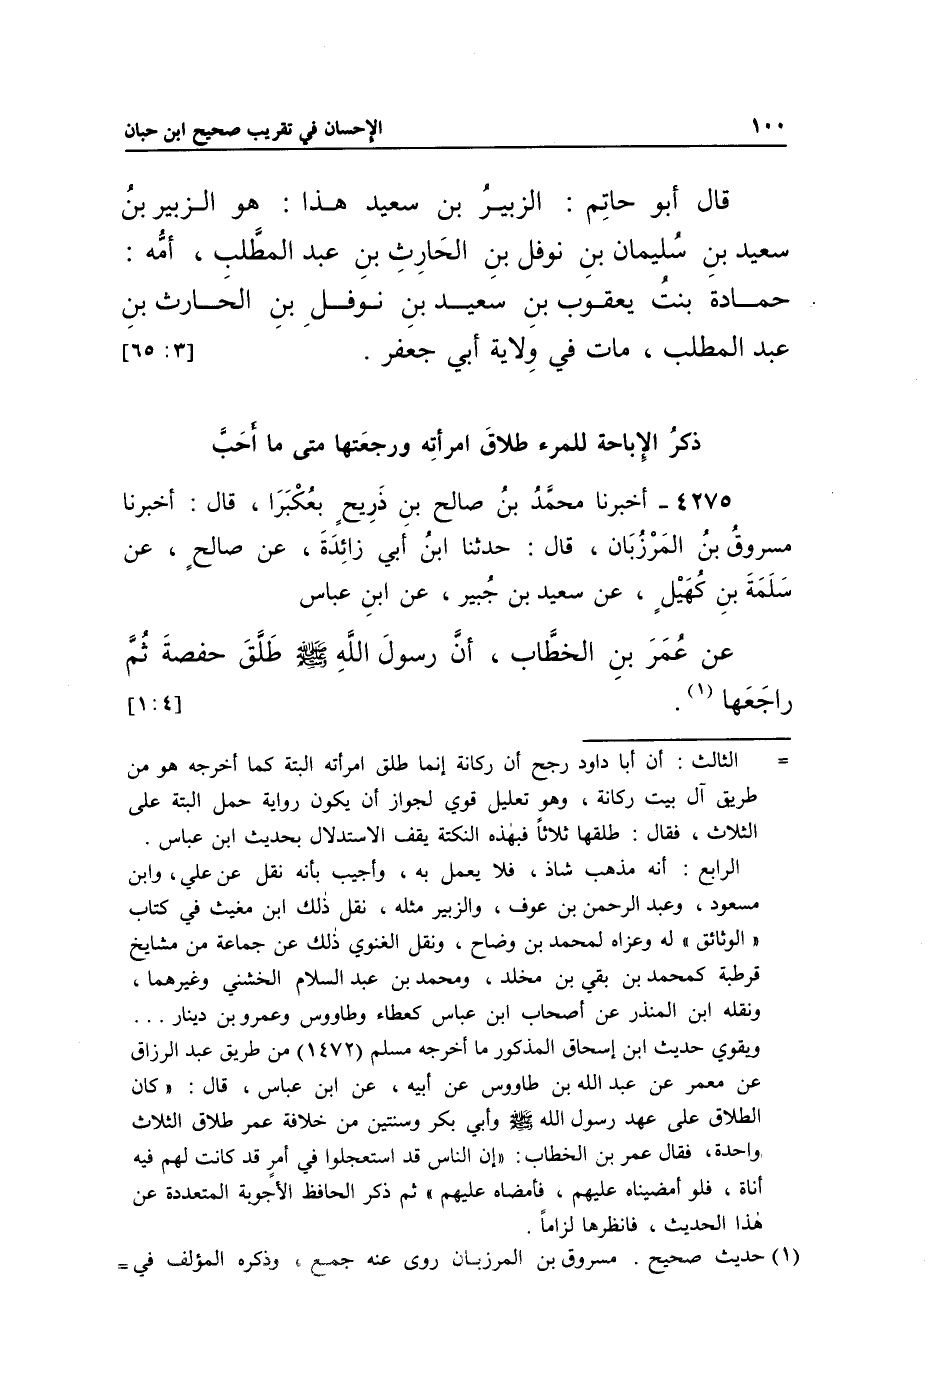 ١٠٠ الإحسان في تقريب صحيح ابن حبان
قال أبو حاتِم : الزبيرُ بن سعيد هـذا : هو الـزبير بنُ
سعيد بنِ سُليمان بنِ نوفل بنِ الحَارِثِ بنِ عبد المطَّلب ، أمُّه :
حمـادة بنتُ يعقوب بن سعيـد بنِ نـوفـلِ بنِ الحـارث بنِ
عبد المطلب ، مات في وِلاية أبي جعفر . [٣: ٦٥]
ذكرُ الإباحة للمرء طلاقَ امرأتِه ورجعَتها متى ما أَحَبَّ
٤٢٧٥ ـ أخبرنا محمَّدُ بنُ صالح بنِ ذَرِيحٍ بعُكْبَرَا ، قال : أخبرنا
مسروقُ بنُ المَرْزُبَان ، قال : حدثنا ابنُ أبي زائِدَةَ ، عن صالحٍ ، عن
سَلَمَةَ بنِ كُهَيْلٍ ، عن سعيد بن جُبير ، عن ابنِ عباس
عن عُمَرَ بنِ الخطَّاب ، أنَّ رسولَ اللَّهِ ﷺ طَلَّقَ حفصةَ ثُمَّ
راجَعَها (١) . [٤: ١]
= الثالث : أن أبا داود رجح أن ركانة إنما طلق امرأته البتة كما أخرجه هو من
طريق آل بيت ركانة ، وهو تعليل قوي لجواز أن يكون رواية حمل البتة على
الثلاث ، فقال : طلقها ثلاثاً فبهٰذه النكتة يقف الاستدلال بحديث ابن عباس .
الرابع : أنه مذهب شاذ ، فلا يعمل به ، وأجيب بأنه نقل عن علي، وابن
مسعود ، وعبد الرحمن بن عوف ، والزبير مثله ، نقل ذٰلك ابن مغيث في كتاب
« الوثائق » له وعزاه لمحمد بن وضاح ، ونقل الغنوي ذٰلك عن جماعة من مشايخ
قرطبة كمحمد بن بقي بن مخلد ، ومحمد بن عبد السلام الخشني وغيرهما ،
ونقله ابن المنذر عن أصحاب ابن عباس كعطاء وطاووس وعمرو بن دينار ...
ويقوي حديث ابن إسحاق المذكور ما أخرجه مسلم (١٤٧٢) من طريق عبد الرزاق
عن معمر عن عبد الله بن طاووس عن أبيه ، عن ابن عباس ، قال : « كان
الطلاق على عهد رسول الله ﷺ وأبي بكر وسنتين من خلافة عمر طلاق الثلاث
واحدة، فقال عمر بن الخطاب: «إن الناس قد استعجلوا في أمرٍ قد كانت لهم فيه
أناة ، فلو أمضيناه عليهم ، فأمضاه عليهم » ثم ذكر الحافظ الأجوبة المتعددة عن
هٰذا الحديث ، فانظرها لزاماً .
(١) حديث صحيح . مسروق بن المرزبان روى عنه جمع ، وذكره المؤلف في =